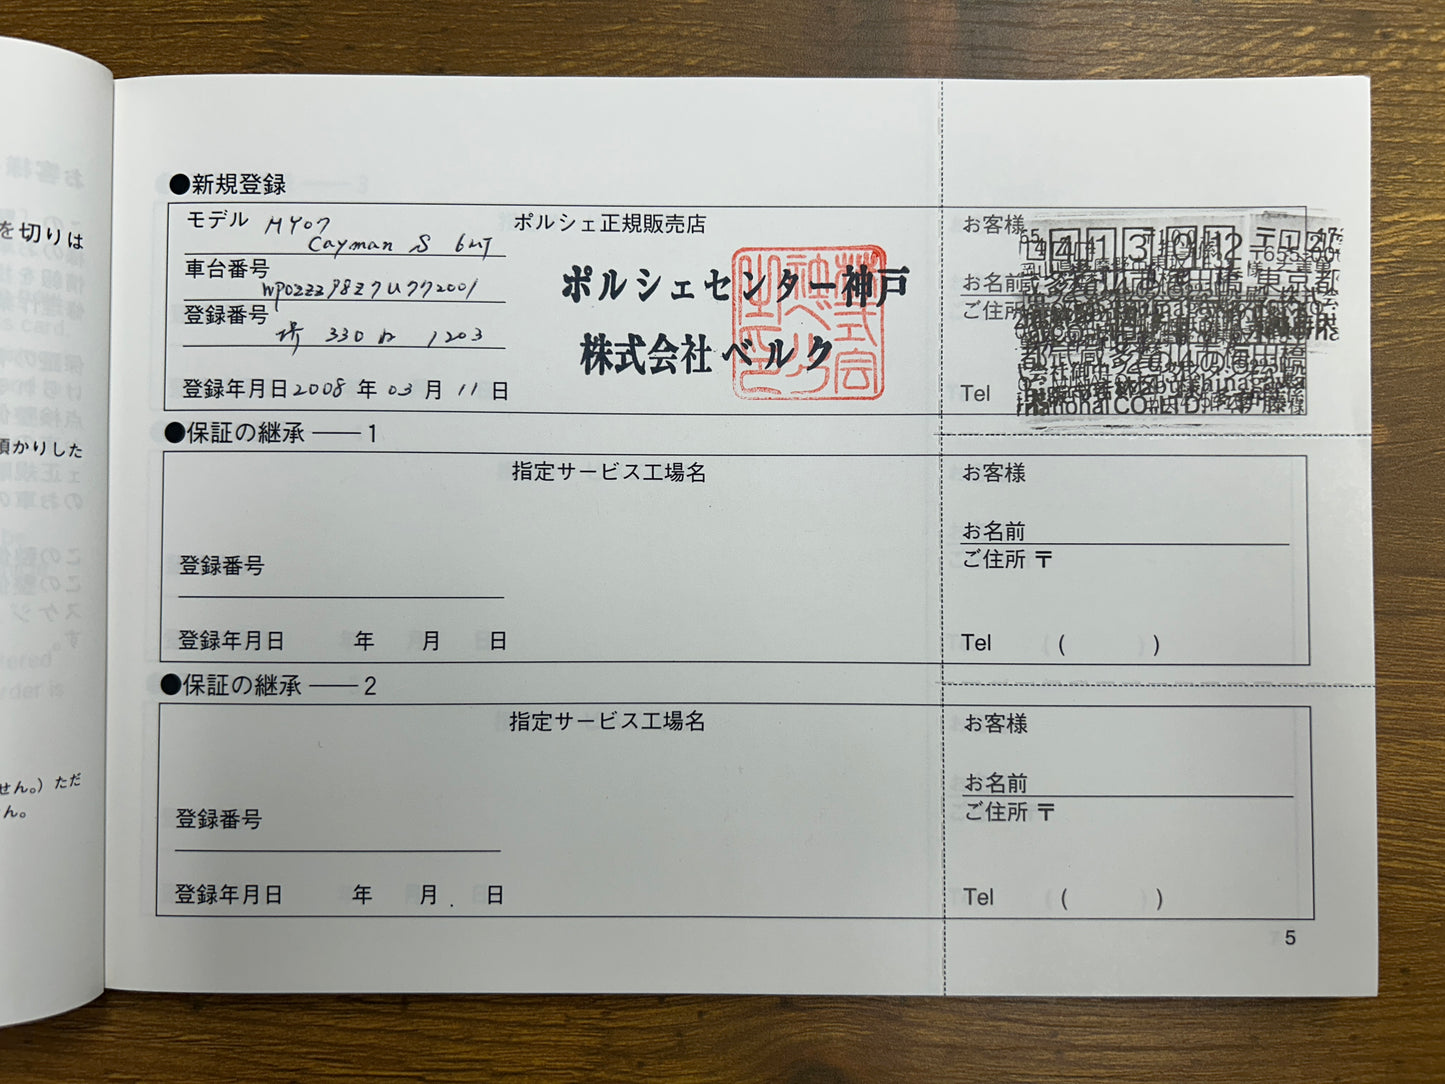 を切りは
頂かりした
せん。）ただ
ん。
●新規登録
モデル MY07
Cayman S 6MT
ポルシェ正規販売店
車台番号
WP0ZZZ98Z7U772001
登録番号
堺 330 ね 1203
登録年月日 2008 年 03 月 11 日
ポルシェセンター神戸
株式会社ベルク
お客様
お名前
ご住所
Tel
●保証の継承 ―― 1
指定サービス工場名
登録番号
登録年月日 年 月 日
お客様
お名前
ご住所 〒
Tel ( )
●保証の継承 ―― 2
指定サービス工場名
登録番号
登録年月日 年 月 日
お客様
お名前
ご住所 〒
Tel ( )
5